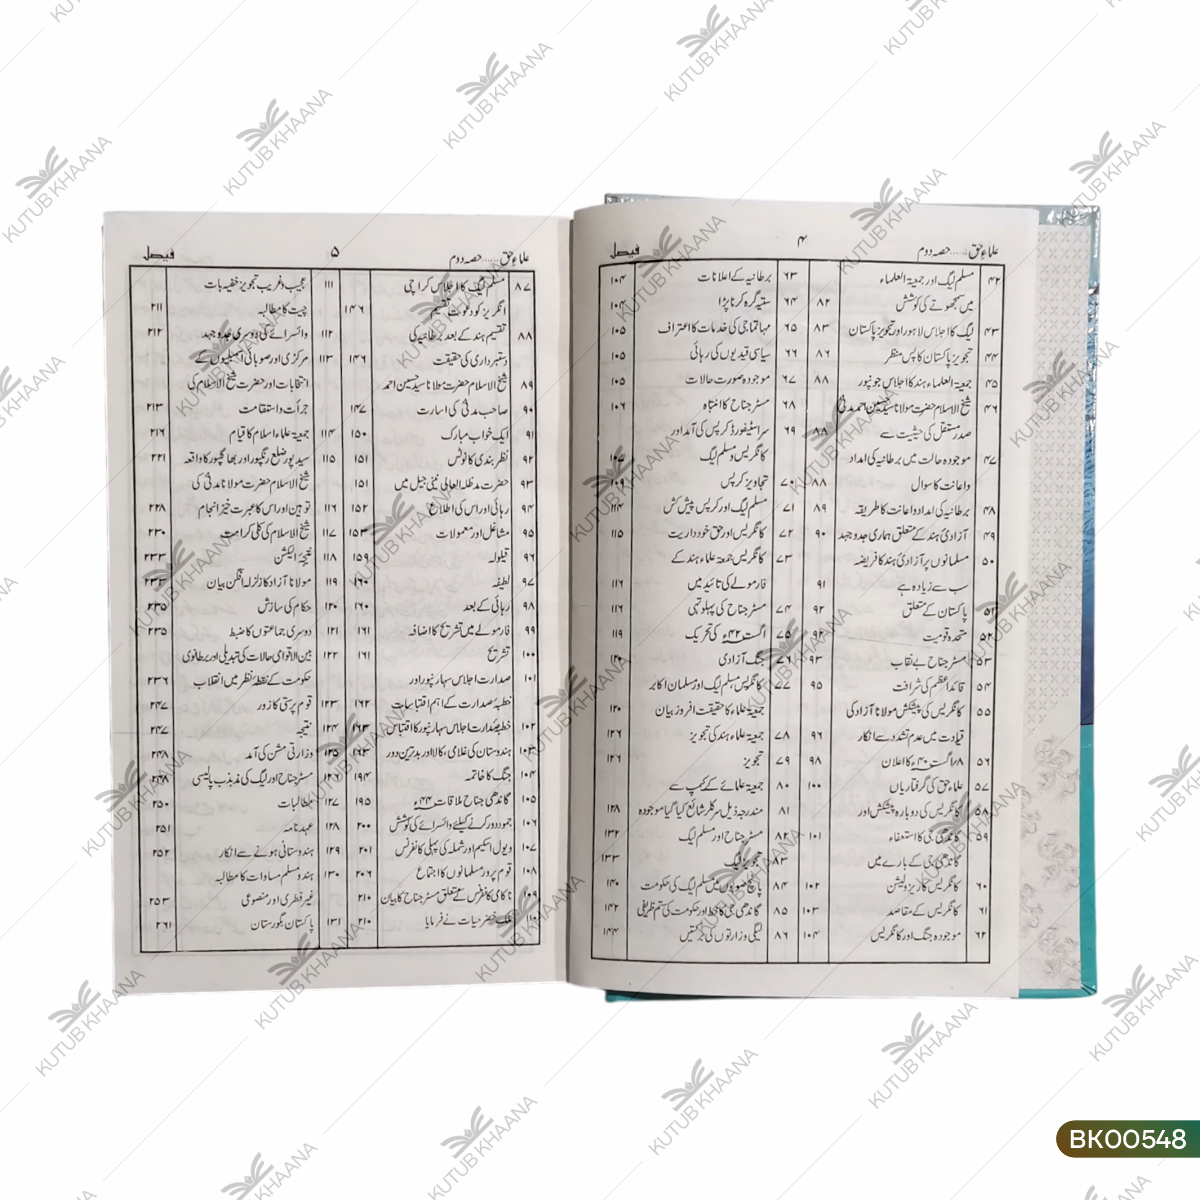 علماءِ حق ...... حصہ دوم ۴ فیصل
۴۲ مسلم لیگ اور جمعیۃ العلماء
میں سمجھوتے کی کوشش ۸۲
۴۳ لیگ کا اجلاس لاہور اور تجویز پاکستان ۸۳
۴۴ تجویز پاکستان کا پس منظر ۸۶
۴۵ جمعیۃ العلماء ہند کا اجلاس جونپور ۸۸
۴۶ شیخ الاسلام حضرت مولانا سید حسین احمد مدنیؒ
صدر مستقل کی حیثیت سے ۸۸
۴۷ موجودہ حالت میں برطانیہ کی امداد
واعانت کا سوال ۸۸
۴۸ برطانیہ کی امداد واعانت کا طریقہ ۸۹
۴۹ آزادیٔ ہند کے متعلق ہماری جدوجہد ۹۰
۵۰ مسلمانوں پر آزادیٔ ہند کا فریضہ
سب سے زیادہ ہے ۹۱
۵۱ پاکستان کے متعلق ۹۲
۵۲ متحدہ قومیت ۹۲
۵۳ مسٹر جناح بے نقاب ۹۳
۵۴ قائد اعظم کی شرافت ۹۵
۵۵ کانگریس کی پیشکش مولانا آزاد کی
قیادت میں عدم تشدد سے انکار ۹۶
۵۶ ۸/اگست ۴۰ء کا اعلان ۹۸
۵۷ علماءِ حق کی گرفتاریاں ۱۰۰
۵۸ کانگریس کی دوبارہ پیشکش اور
۵۹ گاندھی جی کا استعفاء ۱۰۱
گاندھی جی کے بارے میں
۶۰ کانگریس کا ریزولیشن ۱۰۲
۶۱ کانگریس کے مقاصد ۱۰۳
۶۲ موجودہ جنگ اور کانگریس ۱۰۴
۶۳ برطانیہ کے اعلانات ۱۰۴
۶۴ ستیہ گرہ کرنا پڑا ۱۰۴
۶۵ مہاتما جی کی خدمات کا اعتراف ۱۰۵
۶۶ سیاسی قیدیوں کی رہائی ۱۰۵
۶۷ موجودہ صورت حالات ۱۰۵
۶۸ مسٹر جناح کا انتباہ ۱۰۶
۶۹ سر اسٹیفورڈ کرپس کی آمد اور
کانگریس و مسلم لیگ ۱۰۷
۷۰ تجاویز کرپس ۱۰۹
۷۱ مسلم لیگ اور کرپس پیش کش
۷۲ کانگریس اور حق خود داریت ۱۱۵
۷۳ کانگریس جمعۃ علماء ہند کے
فارمولے کی تائید میں ۱۱۶
۷۴ مسٹر جناح کی پہلوتہی ۱۱۶
۷۵ اگست ۴۲ء کی تحریک ۱۱۹
۷۶ جنگ آزادی ۱۲۰
۷۷ کانگریس مسلم لیگ اور مسلمان اکابر
جمعیۃ علماء کا حقیقت افروز بیان ۱۲۰
۷۸ جمعیۃ علماء ہند کی تجویز ۱۲۶
۷۹ تجویز ۱۲۶
۸۰ جمعیۃ علمائے کے کیمپ سے
۸۱ مندرجہ ذیل سرکلر شائع کیا گیا موجودہ ۱۲۸
۸۲ مسٹر جناح اور مسلم لیگ ۱۳۲
۸۳ تجویز لیگ ۱۳۳
۸۴ پانچ صوبوں میں مسلم لیگ کی حکومت ۱۴۰
۸۵ گاندھی جی کا خط اور حکومت کی ستم ظریفی ۱۴۲
۸۶ لیگی وزارتوں کی برکتیں ۱۴۴
علماءِ حق ...... حصہ دوم ۵ فیصل
۸۷ مسلم لیگ کا اجلاس کراچی
انگریز کو دعوت تقسیم ۱۴۶
۸۸ تقسیم ہند کے بعد برطانیہ کی
دستبرداری کی حقیقت ۱۴۶
۸۹ شیخ الاسلام حضرت مولانا سید حسین احمد
۹۰ صاحب مدنیؒ کی اسارت ۱۴۷
۹۱ ایک خواب مبارک ۱۵۰
۹۲ نظر بندی کا نوٹس ۱۵۱
۹۳ حضرت مدظلہ العالی نینی جیل میں ۱۵۱
۹۴ رہائی اور اس کی اطلاع ۱۵۲
۹۵ مشاغل اور معمولات ۱۵۳
۹۶ قیلولہ ۱۵۹
۹۷ لطیفہ ۱۶۰
۹۸ رہائی کے بعد ۱۶۰
۹۹ فارمولے میں تشریح کا اضافہ ۱۶۱
۱۰۰ تشریح ۱۶۱
۱۰۱ صدارت اجلاس سہارنپور اور
خطبۂ صدارت کے اہم اقتباسات ۱۶۲
۱۰۲ خطبۂ صدارت اجلاس سہارنپور کا اقتباس ۱۶۳
۱۰۳ ہندوستان کی غلامی، کالا اور بدترین دور ۱۶۳
۱۰۴ جنگ کا خاتمہ ۱۹۴
۱۰۵ گاندھی جناح ملاقات ۴۴ء ۱۹۵
۱۰۶ جمود دور کرنے کیلئے وائسرائے کی کوشش ۲۰۰
۱۰۷ ویول اسکیم اور شملہ کی پہلی کانفرنس ۲۰۱
۱۰۸ قوم پرور مسلمانوں کا اجتماع ۲۰۶
۱۰۹ ناکامی کانفرنس کے متعلق مسٹر جناح کا بیان ۲۱۰
۱۱۰ ملک خضر حیات نے فرمایا ۲۱۰
۱۱۱ عجیب و غریب تجویز خفیہ بات
چیت کا مطالبہ ۲۱۱
۱۱۲ وائسرائے کی دوسری جدوجہد ۲۱۲
۱۱۳ مرکزی اور صوبائی اسمبلیوں کے
انتخابات اور حضرت شیخ الاسلام کی
جرأت و استقامت ۲۱۳
۱۱۴ جمعیۃ علماء اسلام کا قیام ۲۱۶
۱۱۵ سید پور ضلع رنگپور اور بھاگلپور کا واقعہ ۲۲۱
شیخ الاسلام حضرت مولانا مدنیؒ کی
۱۱۶ توہین اور اس کا عبرت خیز انجام ۲۲۸
۱۱۷ شیخ الاسلام کی کھلی کرامت ۲۳۰
۱۱۸ نتیجۂ الیکشن ۲۳۳
۱۱۹ مولانا آزاد کا زلزلہ افگن بیان ۲۳۳
۱۲۰ حکام کی سازش ۲۳۵
۱۲۱ دوسری جماعتوں کا ضبط ۲۳۵
۱۲۲ بین الاقوامی حالات کی تبدیلی اور برطانوی
حکومت کے نقطۂ نظر میں انقلاب ۲۳۶
۱۲۳ قوم پرستی کا زور ۲۴۷
۱۲۴ نتیجہ ۲۴۷
۱۲۵ وزارتی مشن کی آمد ۲۴۸
۱۲۶ مسٹر جناح اور لیگ کی مذبذب پالیسی ۲۴۸
۱۲۷ مطالبات ۲۵۰
۱۲۸ عہد نامہ ۲۵۱
۱۲۹ ہندوستانی ہونے سے انکار ۲۵۲
۱۳۰ ہندو مسلم مساوات کا مطالبہ
غیر فطری اور منصوعی ۲۵۳
۱۳۱ پاکستان بگورستان ۲۶۱
KUTUB KHAANA
BK00548